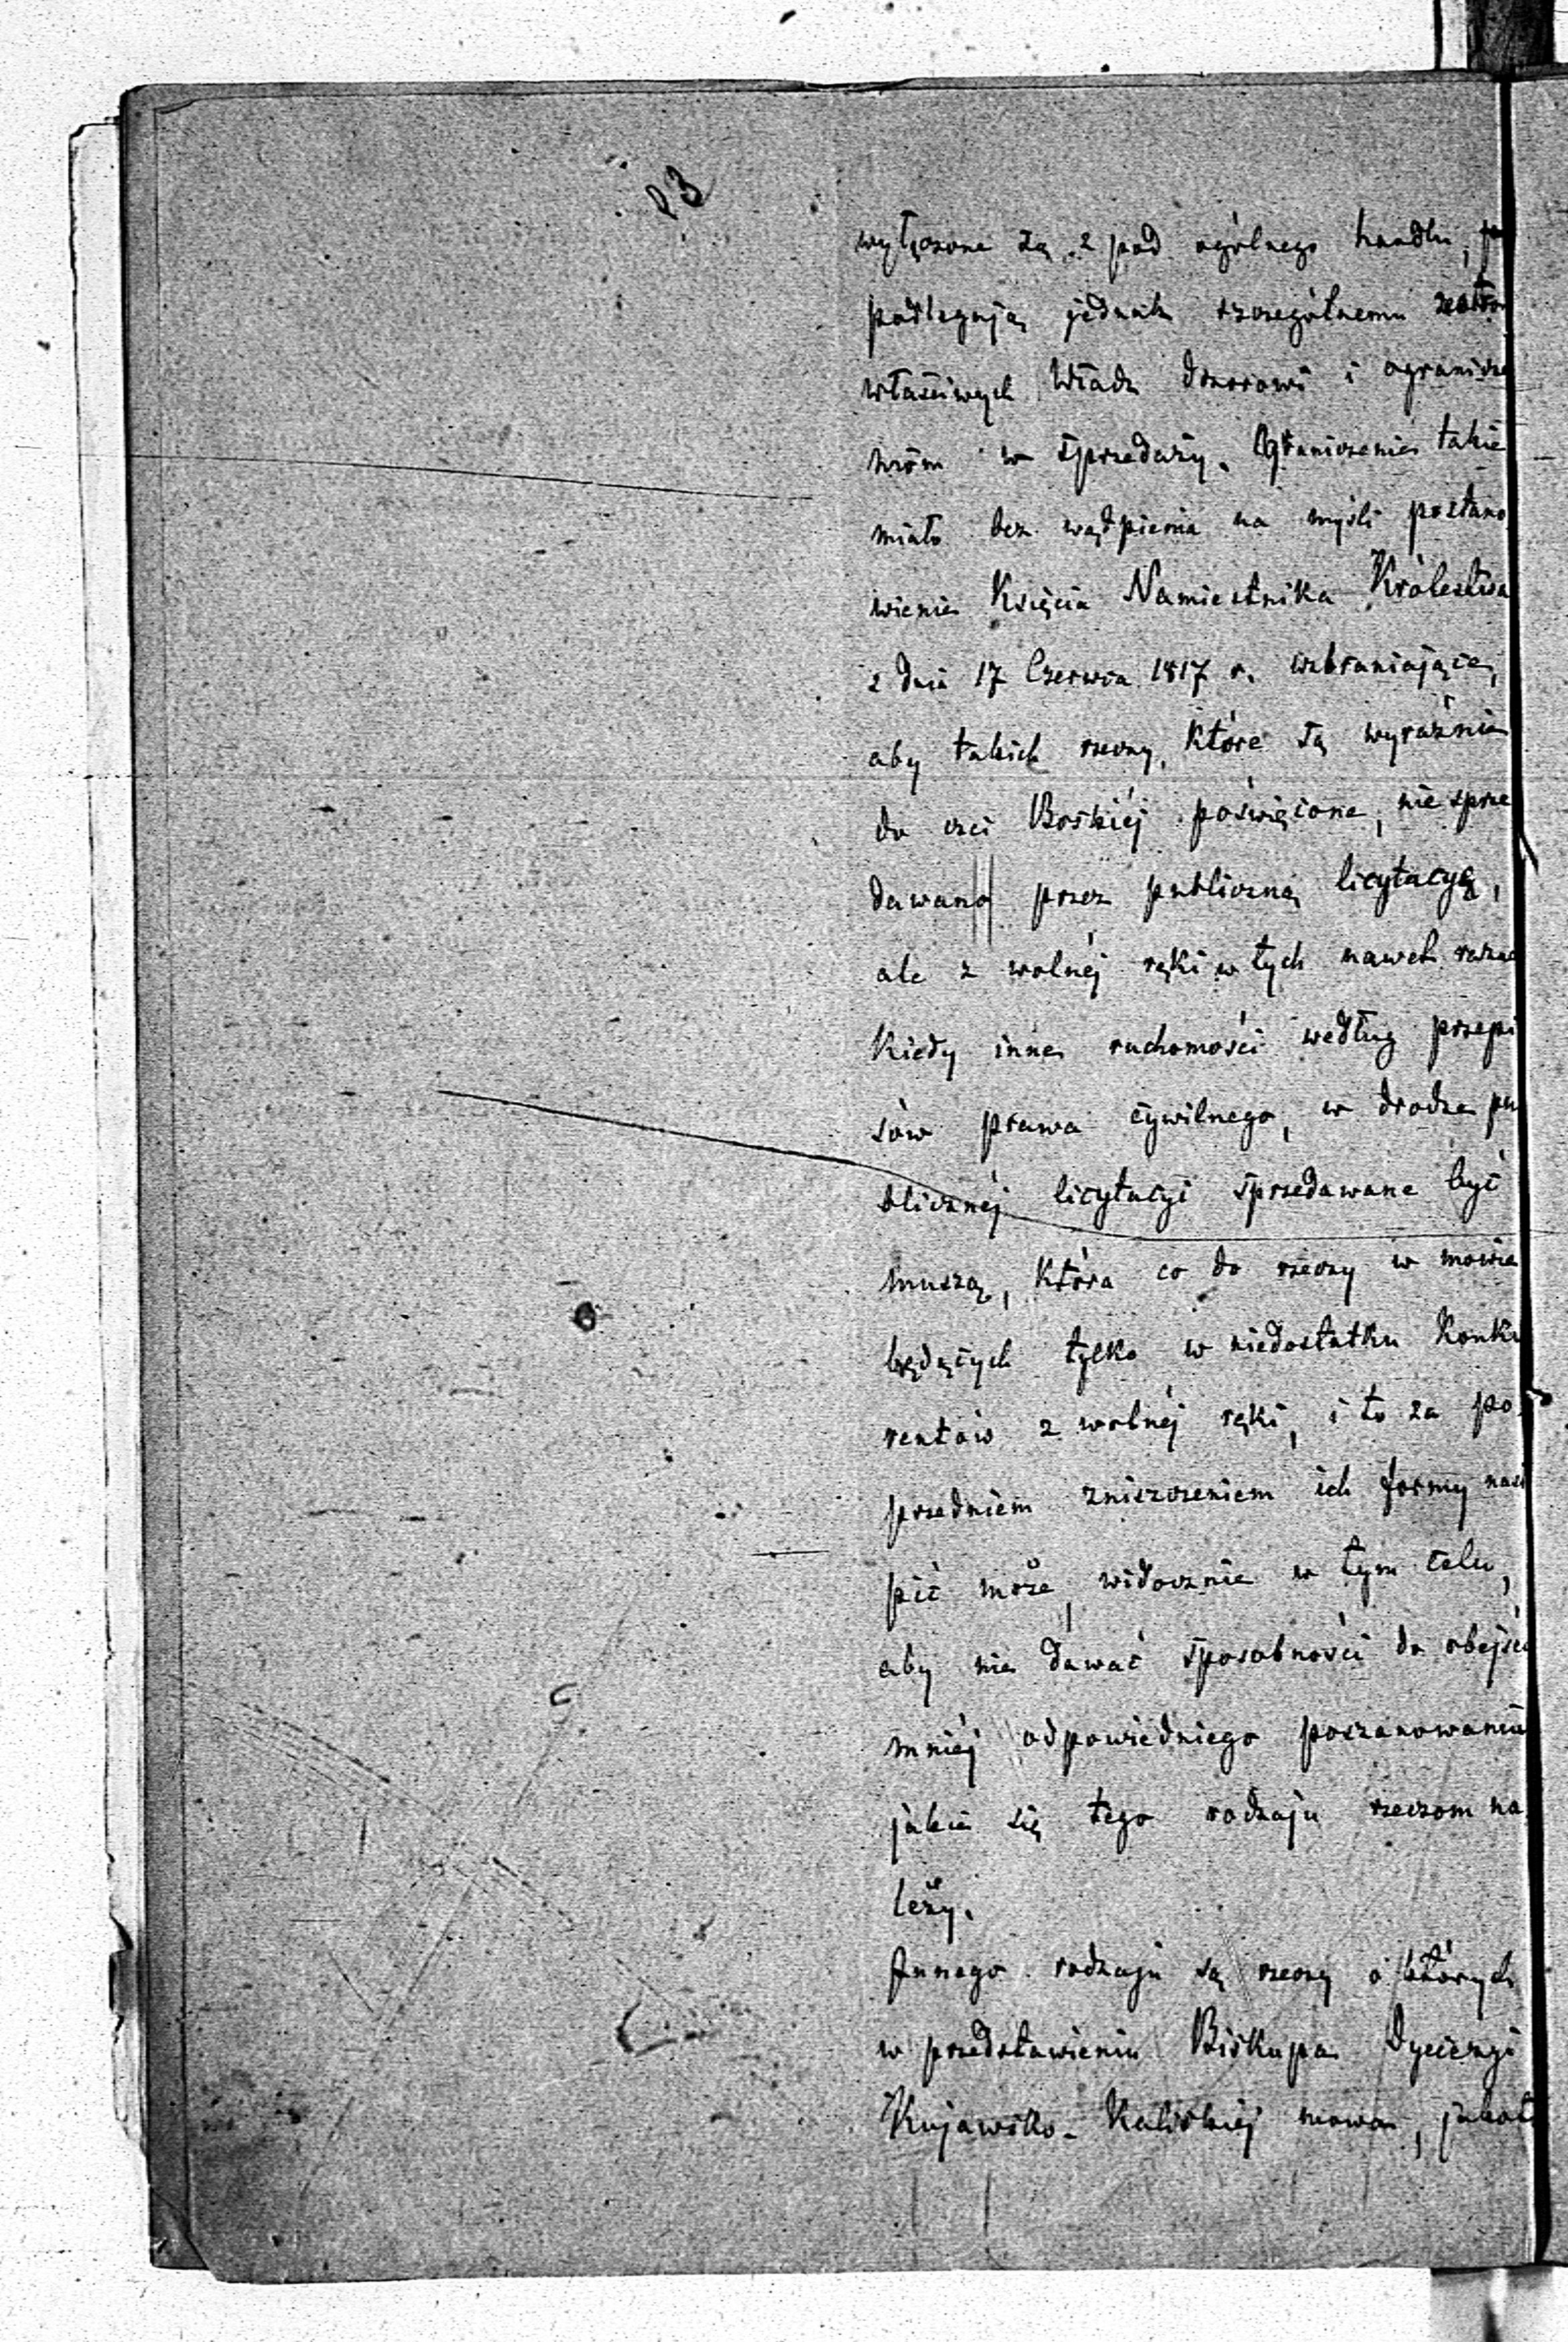 23
wyłączone są z pod ogólnego handlu,
podlegają jednak szczególnemu
właściwych Władz dozorowi i ogranicze
niom w sprzedaży. Ograniczenie takie
miało bez wątpienia na myśli postano
wienie Księcia Namiestnika Królestwa
z dnia 17 Czerwca 1817 r. wzbraniające,
aby takich rzeczy, które są wyraźnie
do czci Boskiéj poświęcone, nie sprze
dawano przez publiczną licytacyą,
ale z wolnéj ręki w tych nawet razac
kiedy inne ruchomości według przepi
sów prawa cywilnego, w drodze pu
blicznéj licytacyi sprzedawane być
muszą, która co do rzeczy w mowie
będących tylko w niedostatku konku
rentów z wolnéj ręki, i to za po
przedniem zniszczeniem ich formy nastą
pić może, widocznie w tym celu,
aby nie dawać sposobności do obejści
mniéj odpowiedniego poszanowaniu
jakie się tego rodzaju rzeczom na
leży.
Innego rodzaju są rzeczy o których
w przedstawieniu Biskupa Dyecezyi
Kujawsko-Kaliskiéj mowa, jakot